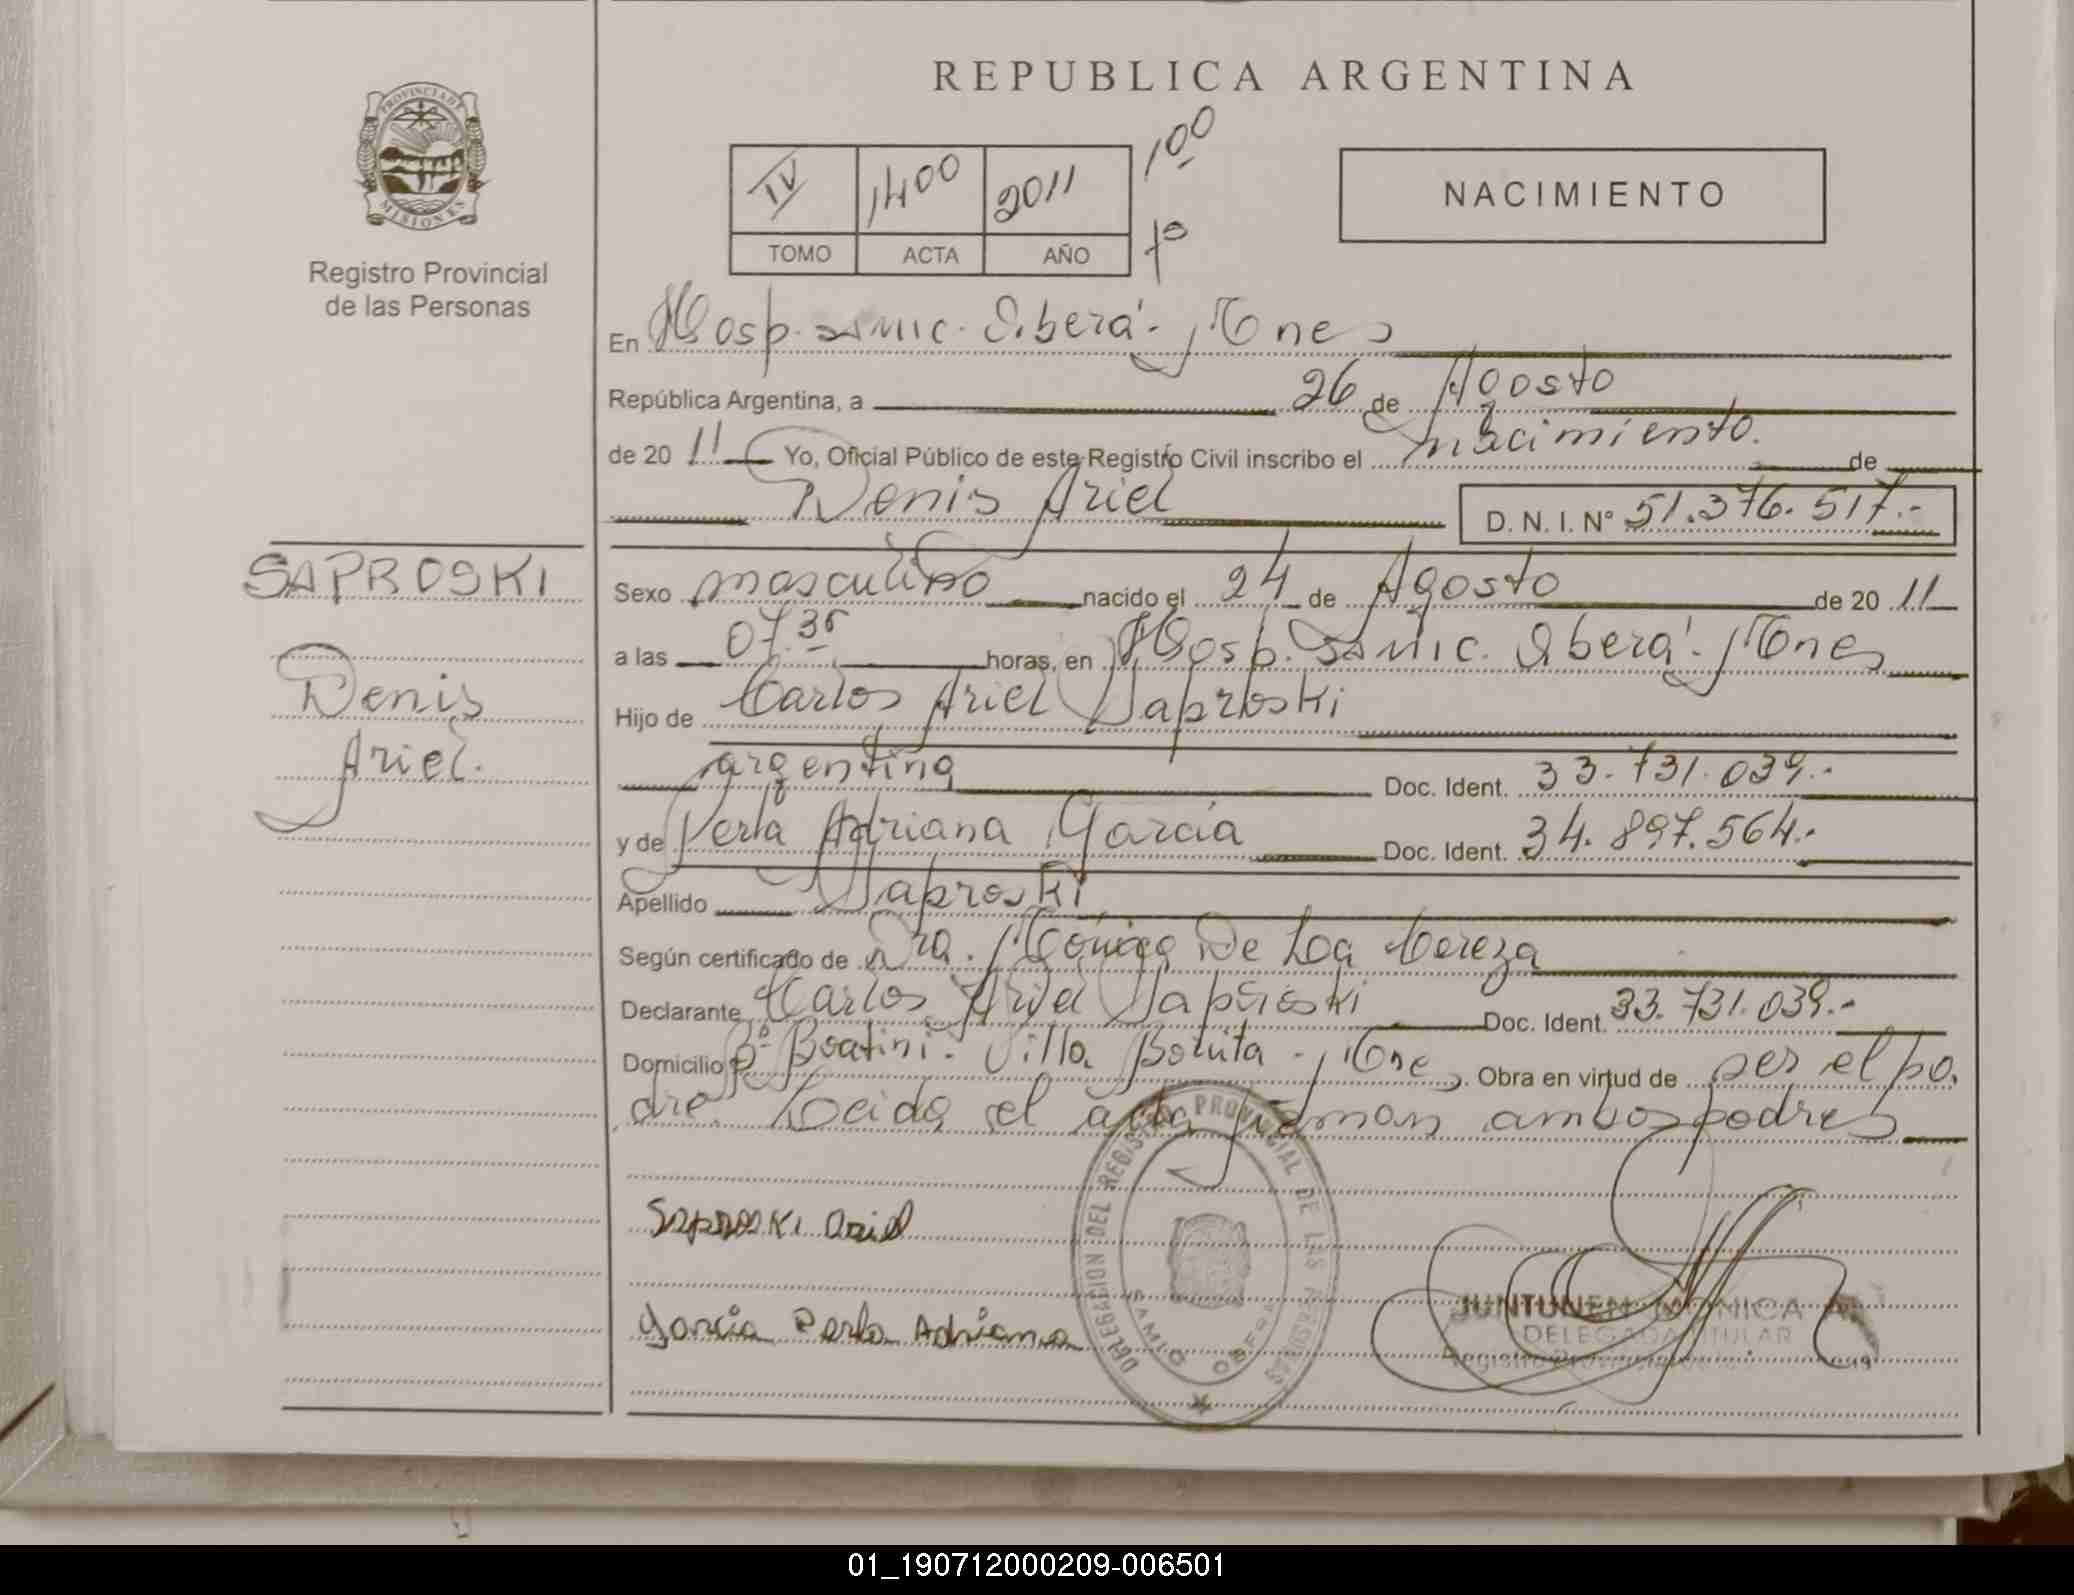 REPUBLICA ARGENTINA
PROVINCIA DE
MISIONES
Registro Provincial
de las Personas
IV 1400 2011 100
TOMO ACTA AÑO 1º
NACIMIENTO
En Hosp. Samic. Oberá - Mnes
República Argentina, a 26 de Agosto
de 2011 Yo, Oficial Público de este Registro Civil inscribo el nacimiento. de
Denis Ariel D. N. I. Nº 51.376.517.-
SAPROSKI
Denis
Ariel.
Sexo masculino nacido el 24 de Agosto de 2011
a las 07.35 horas, en Hosp. Samic. Oberá - Mnes
Hijo de Carlos Ariel Saproski
argentina Doc. Ident. 33.731.039.-
y de Perla Adriana García Doc. Ident. 34.897.564.-
Apellido Saproski
Según certificado de Dra. Mónica De La Cereza
Declarante Carlos Ariel Saproski Doc. Ident. 33.731.039.-
Domicilio Bº Boatini - Villa Bonita - Mnes. Obra en virtud de ser el pa
dre. Leida el acta firman ambos padres
Saproski Ariel
Garcia Perla Adriana
DELEGACION DEL REGISTRO PROVINCIAL DE LAS PERSONAS
SAMIC OBERA
JUNTUNEN MONICA A.
DELEGADA TITULAR
01_190712000209-006501